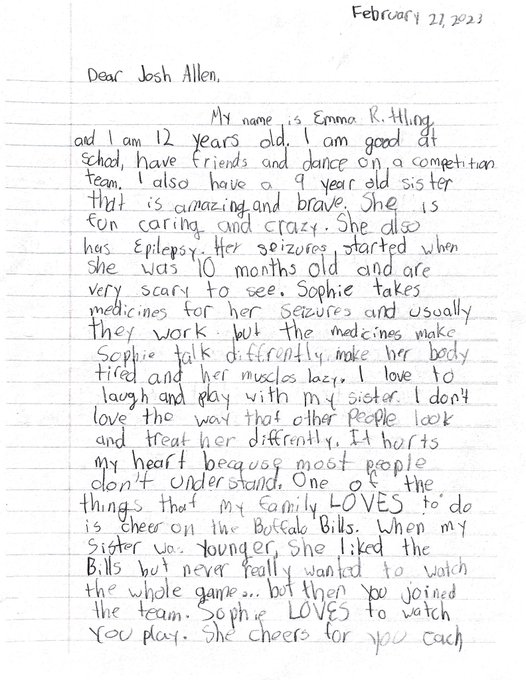 February 27, 2023
Dear Josh Allen,
My name is Emma R.
and I am 12 years old. I am good at
school, have friends and dance on a competition
team. I also have a 9 year old sister
that is amazing and brave. She is
fun caring and crazy. She also
has Epilepsy. Her seizures started when
she was 10 months old and are
very scary to see. Sophie takes
medicines for her seizures and usually
they work but the medicines make
Sophie talk diffrently, make her body
tired and her muscles lazy. I love to
laugh and play with my sister. I don't
love the way that other people look
and treat her diffrently. It hurts
my heart because most people
don't understand. One of the
things that my family LOVES to do
is cheer on the Buffalo Bills. When my
sister was younger, she liked the
Bills but never really wanted to watch
the whole game... but then you joined
the team. Sophie LOVES to watch
you play. She cheers for you each